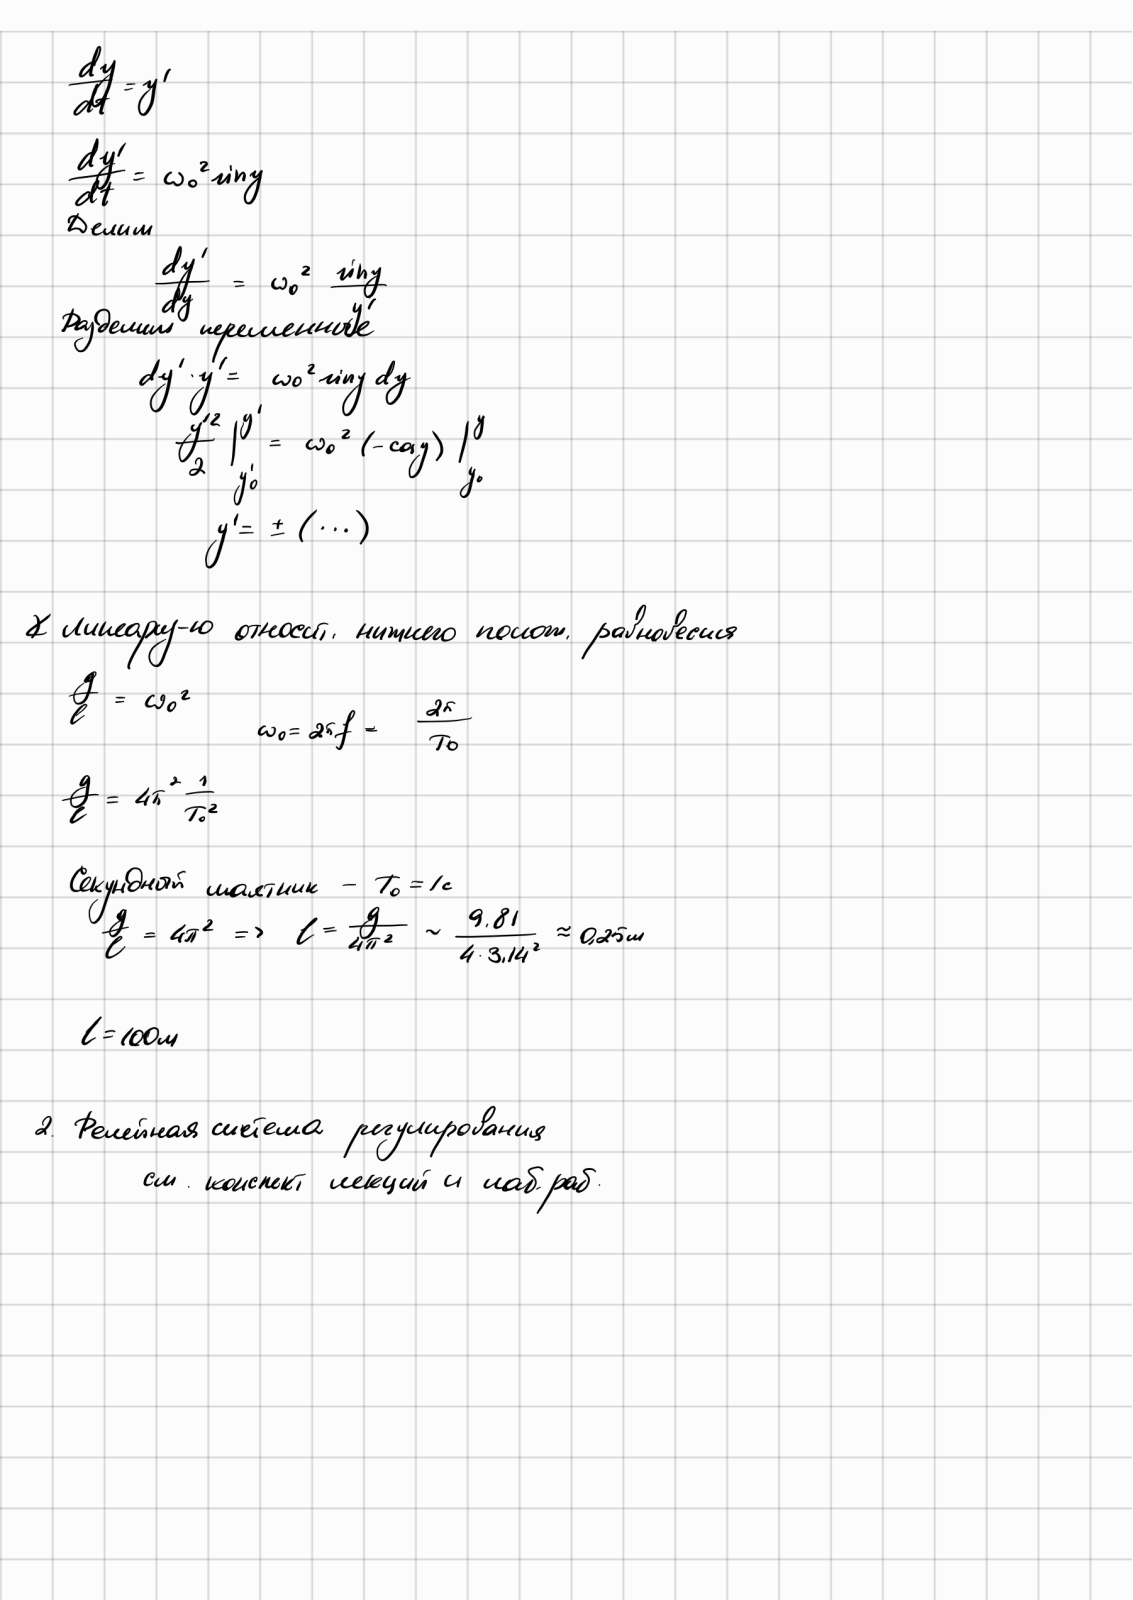 dy/dt = y'
dy'/dt = ω₀² siny
Делим
dy'/dy = ω₀² siny/y'
Разделим переменные
dy' · y' = ω₀² siny dy
y'²/2 |y' y'₀ = ω₀² (-cosy) |y y₀
y' = ± (...)
линеариз-ю относит. нижнего полож. равновесия
g/l = ω₀²
ω₀ = 2πf = 2π/T₀
g/l = 4π² 1/T₀²
Секундный маятник - T₀ = 1c
g/l = 4π² => l = g/4π² ~ 9.81/4·3,14² ≈ 0,25м
l = 100м
2. Релейная система регулирования
см. конспект лекций и лаб. раб.